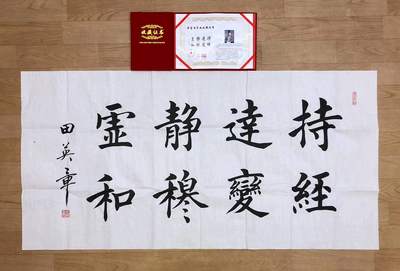 收藏证书
持經
達變
静穆
霊和
田英章